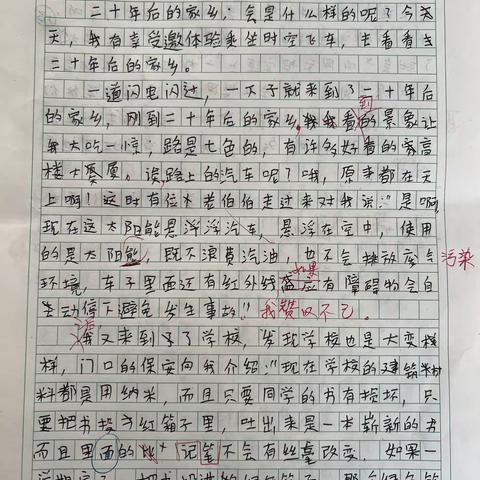 二十年后的家乡,会是什么样的呢?今天
天,我有幸受邀体验乘坐时空飞车,去看看
二十年后的家乡。
一道闪电闪过,一下子就来到了二十年后
的家乡,刚到二十年后的家乡,看到的景象让
我大吃一惊;路是七色的,有许多好看的高
楼大厦。误,路上的汽车呢?哦,原来都在天
上啊!这时有位老伯伯走过来对我说:"是啊,
现在这太阳能悬浮汽车,悬浮在空中,使用
的是太阳能,既不浪费汽油,也不会排放废气污染
环境,车子里面还有红外线,如果有障碍物会自
动停下避免发生事故。"我赞叹不已。
之后我又来到了学校,发现学校也是大变模
样,门口的保安向我介绍:"现在学校的建筑材
料都是用纳米,而且只要同学的书有损坏,只
要把书投予红箱子里,吐出来是一本崭新的书
而且里面的笔记不会有丝毫改变,如果一